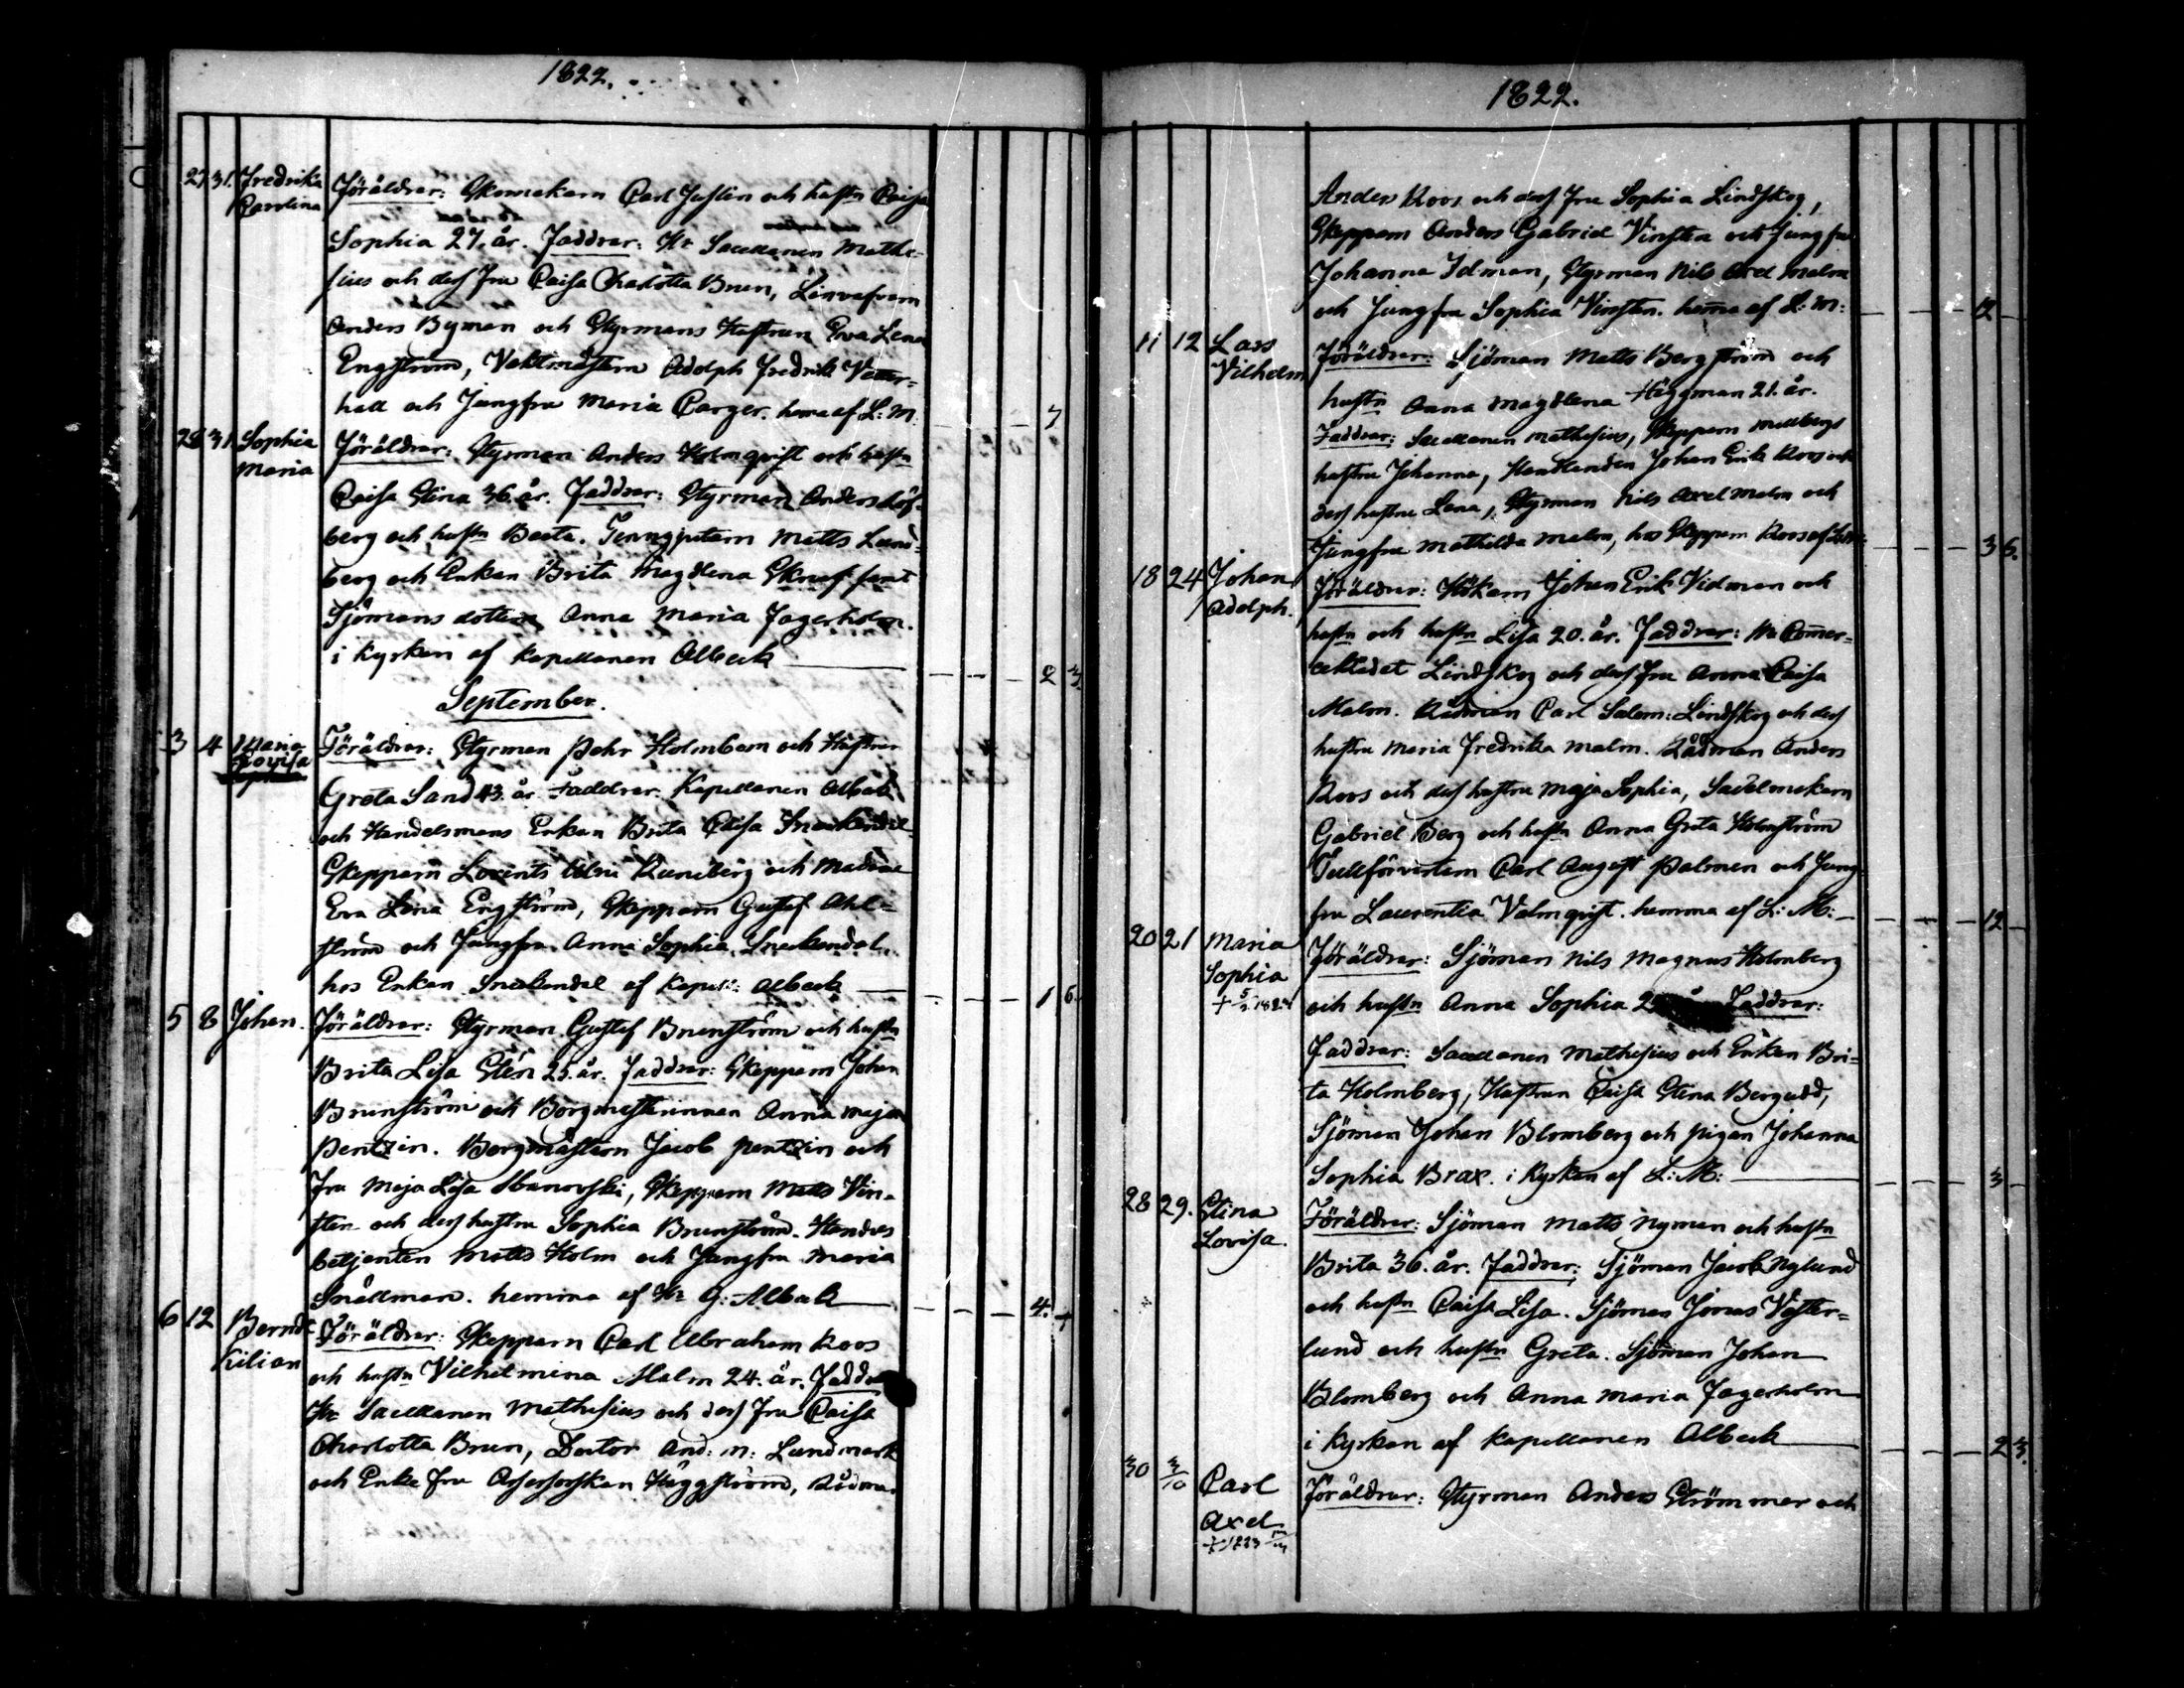 1822.
27 31. Fredrika Carolina
Föräldrar: Skomakarn Carl Juslin och hustn Caisa
Sophia 27. år. Faddrar: Hr Sacellanen Mathe-
sius och dess fru Caisa Charlotta Brun, Linvefvarn
Anders Byman och Styrmans Hustrun Eva Lena
Engström, Vaktmästarn Adolph Fredrik Vetter-
hall och Jungfru Maria Carger. hema af L: M.
7
28 31 Sophia Maria
Föräldrar: Styrman Anders Holmqvist och hustn
Caisa Stina 36. år. Faddrar: Styrman Anders Löf-
berg och hustn Beata. Tenngjutarn Matts Lund-
berg och Enkan Brita Magdlena samt
Sjömans dottern Anna Maria Fagerholm.
i Kyrkan af Kapellanen Alback
2 3.
September.
3 4 Maria Lovisa
Föräldrar: Styrman Pehr Holmbom och Hustrun
Greta Sand 43. år. Faddrar. Kapellanen Alback
och Handelsmans Enkan Brita Caisa Snickendal
Skepparn Lorents Ulric Runeberg och Madame
Eva Lena Engström, Skepparn Gustaf Ahl-
ström och Jungfru Anna Sophia Snickendal.
hos Enkan Snickendal af Kapell: Alback
1 6.
5 8 Johan.
Föräldrar: Styrman Gustaf Brunström och hustn
Brita Lisa Stén 25. år. Faddrar: Skepparn Johan
Brunström och Borgmästarinnan Anna Maja
Pentzin. Borgmästarn Jacob Pentzin och
Fru Maja Lisa Skepparn Matts Vin-
sten och dess hustru Sophia Brunström. Handels
betjenten Matts Holm och Jungfru Maria
Snällman. hemma af Hr G: Alback
4.
6 12 Berndt Kilian
Föräldrar: Skepparn Carl Abraham Roos
och hustn Vilhelmina Malm 24. år. Faddrar
Hr Sacellanen Mathesius och dess fru Caisa
Charlotta Brun, Doctor And: N: Lundmark
och Enke fru Assessorskan Häggström, Rådman
1822.
Anders Roos och dess fru Sophia Lindskog,
Skepparn Anders Gabriel Vinsten och Jungfru
Johanna Idman, Styrman Nils Axel Malm
och Jungfru Sophia Vinsten. hema af L: M:
12
11 12 Lars Vilhelm
Föräldrar: Sjöman Matts Bergström och
hustn Anna Magdlena Häggman 21. år.
Faddrar: Sacellanen Mathesius, Skepparn
hustru Johanna, Handlanden Johan Erik Roos och
dess hustru Lena, Styrman Nils Axel Malm och
Jungfru Mathilda Malm, hos Skepparn Roos af L: M:
3 6.
18 24 Johan Adolph.
Föräldrar: Hökarn Johan Erik Vidman och
hustn och hustn Lisa 20. år. Faddrar:
Lindskog och dess fru Anna Caisa
Malm. Rådman Carl Salom: Lindskog och dess
hustru Maria Fredrika Malm. Rådman Anders
Roos och dess hustru Maja Sophia, Sadelmakarn
Gabriel Berg och hustn Anna Greta Holmström
Tullförvaltarn Carl August Palmen och Jung-
fru Laurentia Valmqvist. hemma af L: M:
12
20 21 Maria Sophia
Föräldrar: Sjöman Nils Magnus Holmberg
och hustn Anna Sophia Faddrar:
Faddrar: Sacellanen Mathesius och Enkan Bri-
ta Holmberg, Hustrun Caisa Stina Bergudd,
Sjöman Johan Blomberg och pigan Johanna
Sophia Brax. i Kyrkan af L: M:
3
28 29. Stina Lovisa.
Föräldrar: Sjöman Matts Nyman och hustn
Brita 36. år. Faddrar: Sjöman Jacob Nylund
och hustn Caisa Lisa. Sjöman Jonas Vester-
lund och hustn Greta. Sjöman Johan
Blomberg och Anna Maria Fagerholm
i Kyrkan af Kapellanen Alback
2 3.
30 3/10 Carl Axel
Föräldrar: Styrman Anders Strömmer och